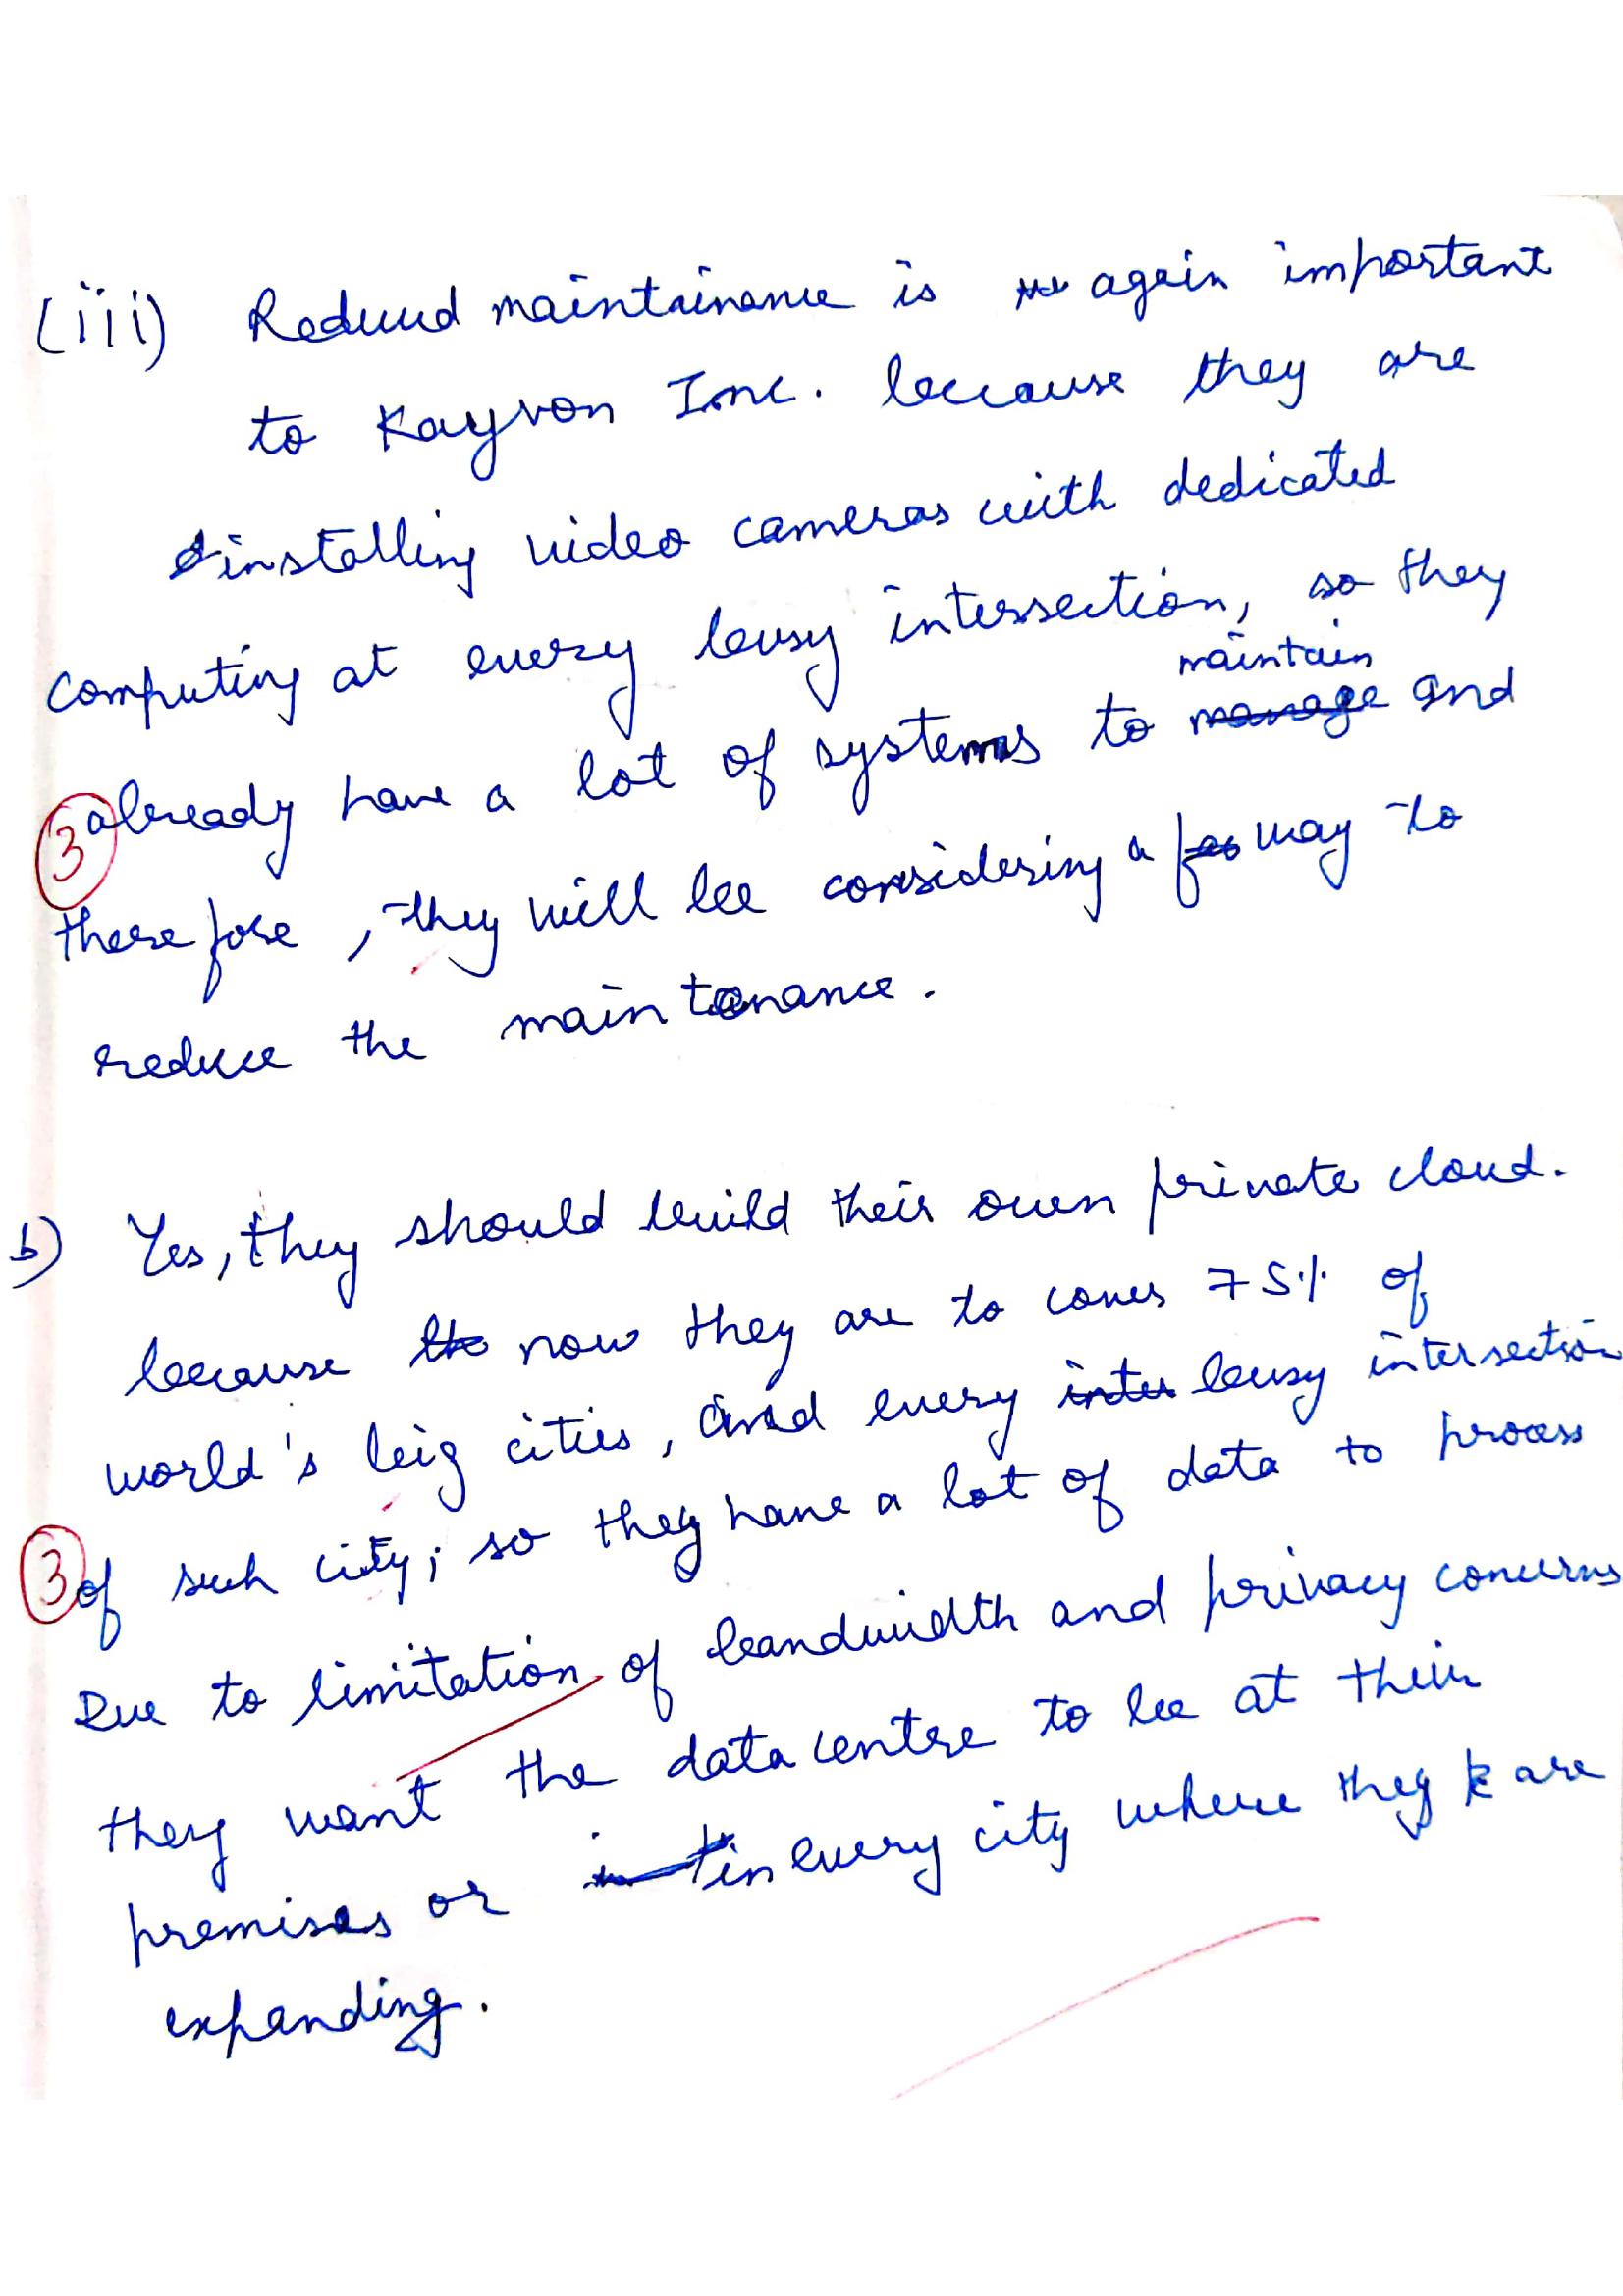 (iii) Reduced maintainance is again important
to Kayvon Inc. because they are
installing video cameras with dedicated
computing at every busy interssection, so they
maintain
already have a lot of systems to manage and
3
therefore, they will be considering a way to
reduce the maintanance.
b) Yes, they should build their own private cloud.
because now they are to cover 75% of
world's big cities, and every inter busy intersection
3
of such city; so they have a lot of data to process
Due to limitation of bandwidth and privacy concerns
they want the data centre to be at their
premises or in every city where they are
expanding.